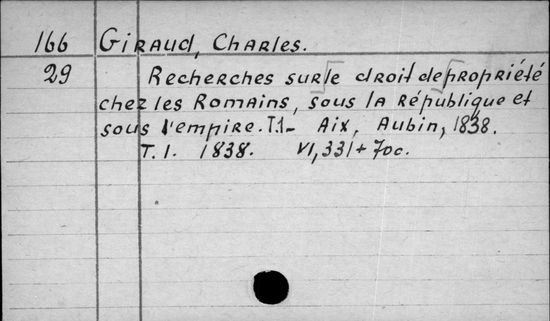 166 Giraud, Charles.
29 Recherches sur le droit de propriété
chez les Romains, sous la République et
sous l'empire. T.1- Aix, Aubin, 1838.
T. 1. 1838. VI, 331 + 70c.